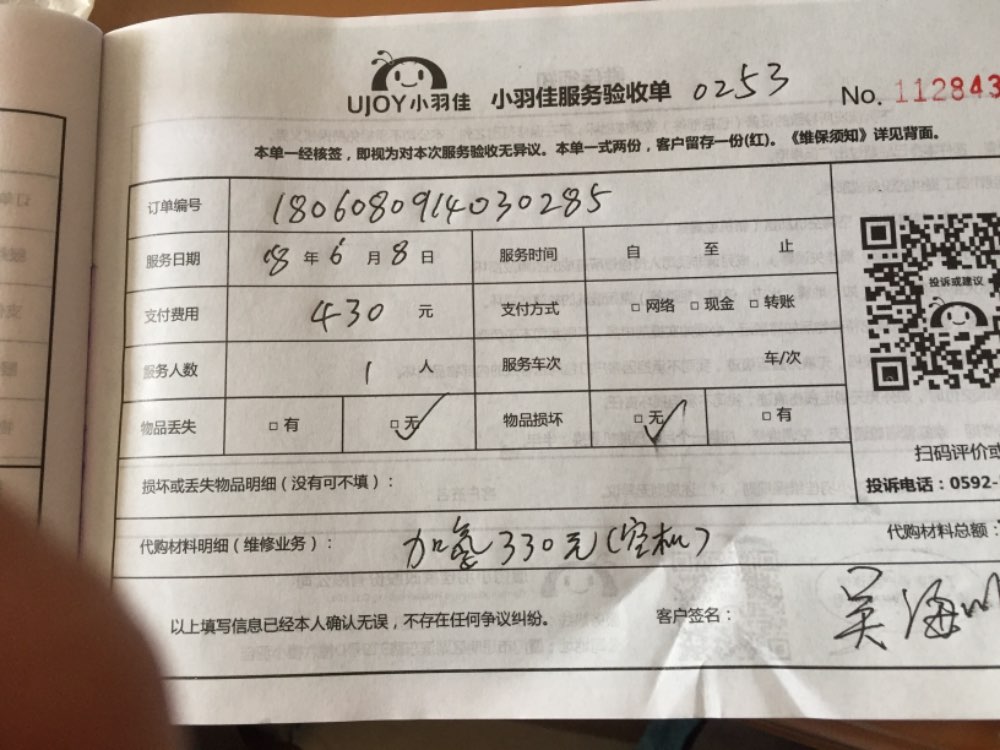 UJOY小羽佳 小羽佳服务验收单 0253 No. 112843
本单一经核签，即视为对本次服务验收无异议。本单一式两份，客户留存一份(红)。《维保须知》详见背面。
订单编号 180608091403​0285
服务日期 08 年 6 月 8 日 服务时间 自 至 止
支付费用 430 元 支付方式 □ 网络 □ 现金 □ 转账
服务人数 1 人 服务车次 车/次
物品丢失 □ 有 □ 无 物品损坏 □ 无 □ 有
投诉或建议
扫码评价或
投诉电话：0592-
损坏或丢失物品明细（没有可不填）：
代购材料明细（维修业务）： 加氟330元(空机) 代购材料总额：
以上填写信息已经本人确认无误，不存在任何争议纠纷。 客户签名： 吴海